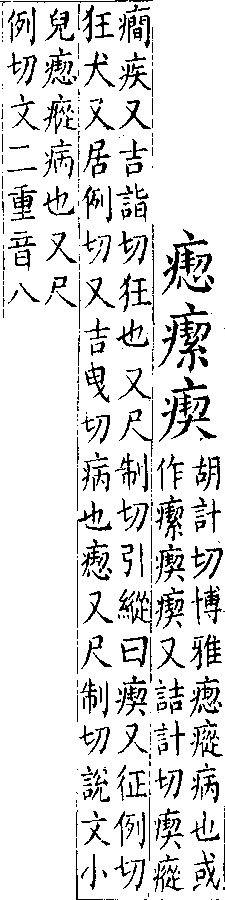 瘛瘈
胡計切博雅瘛瘲病也或
作瘈瘈又詰計切瘈瘲
癎疾又吉詣切狂也又尺制切引縱曰瘈又征例切
狂犬又居例切又吉曳切病也瘛又尺制切說文小
兒瘛瘲病也又尺
例切文二重音八